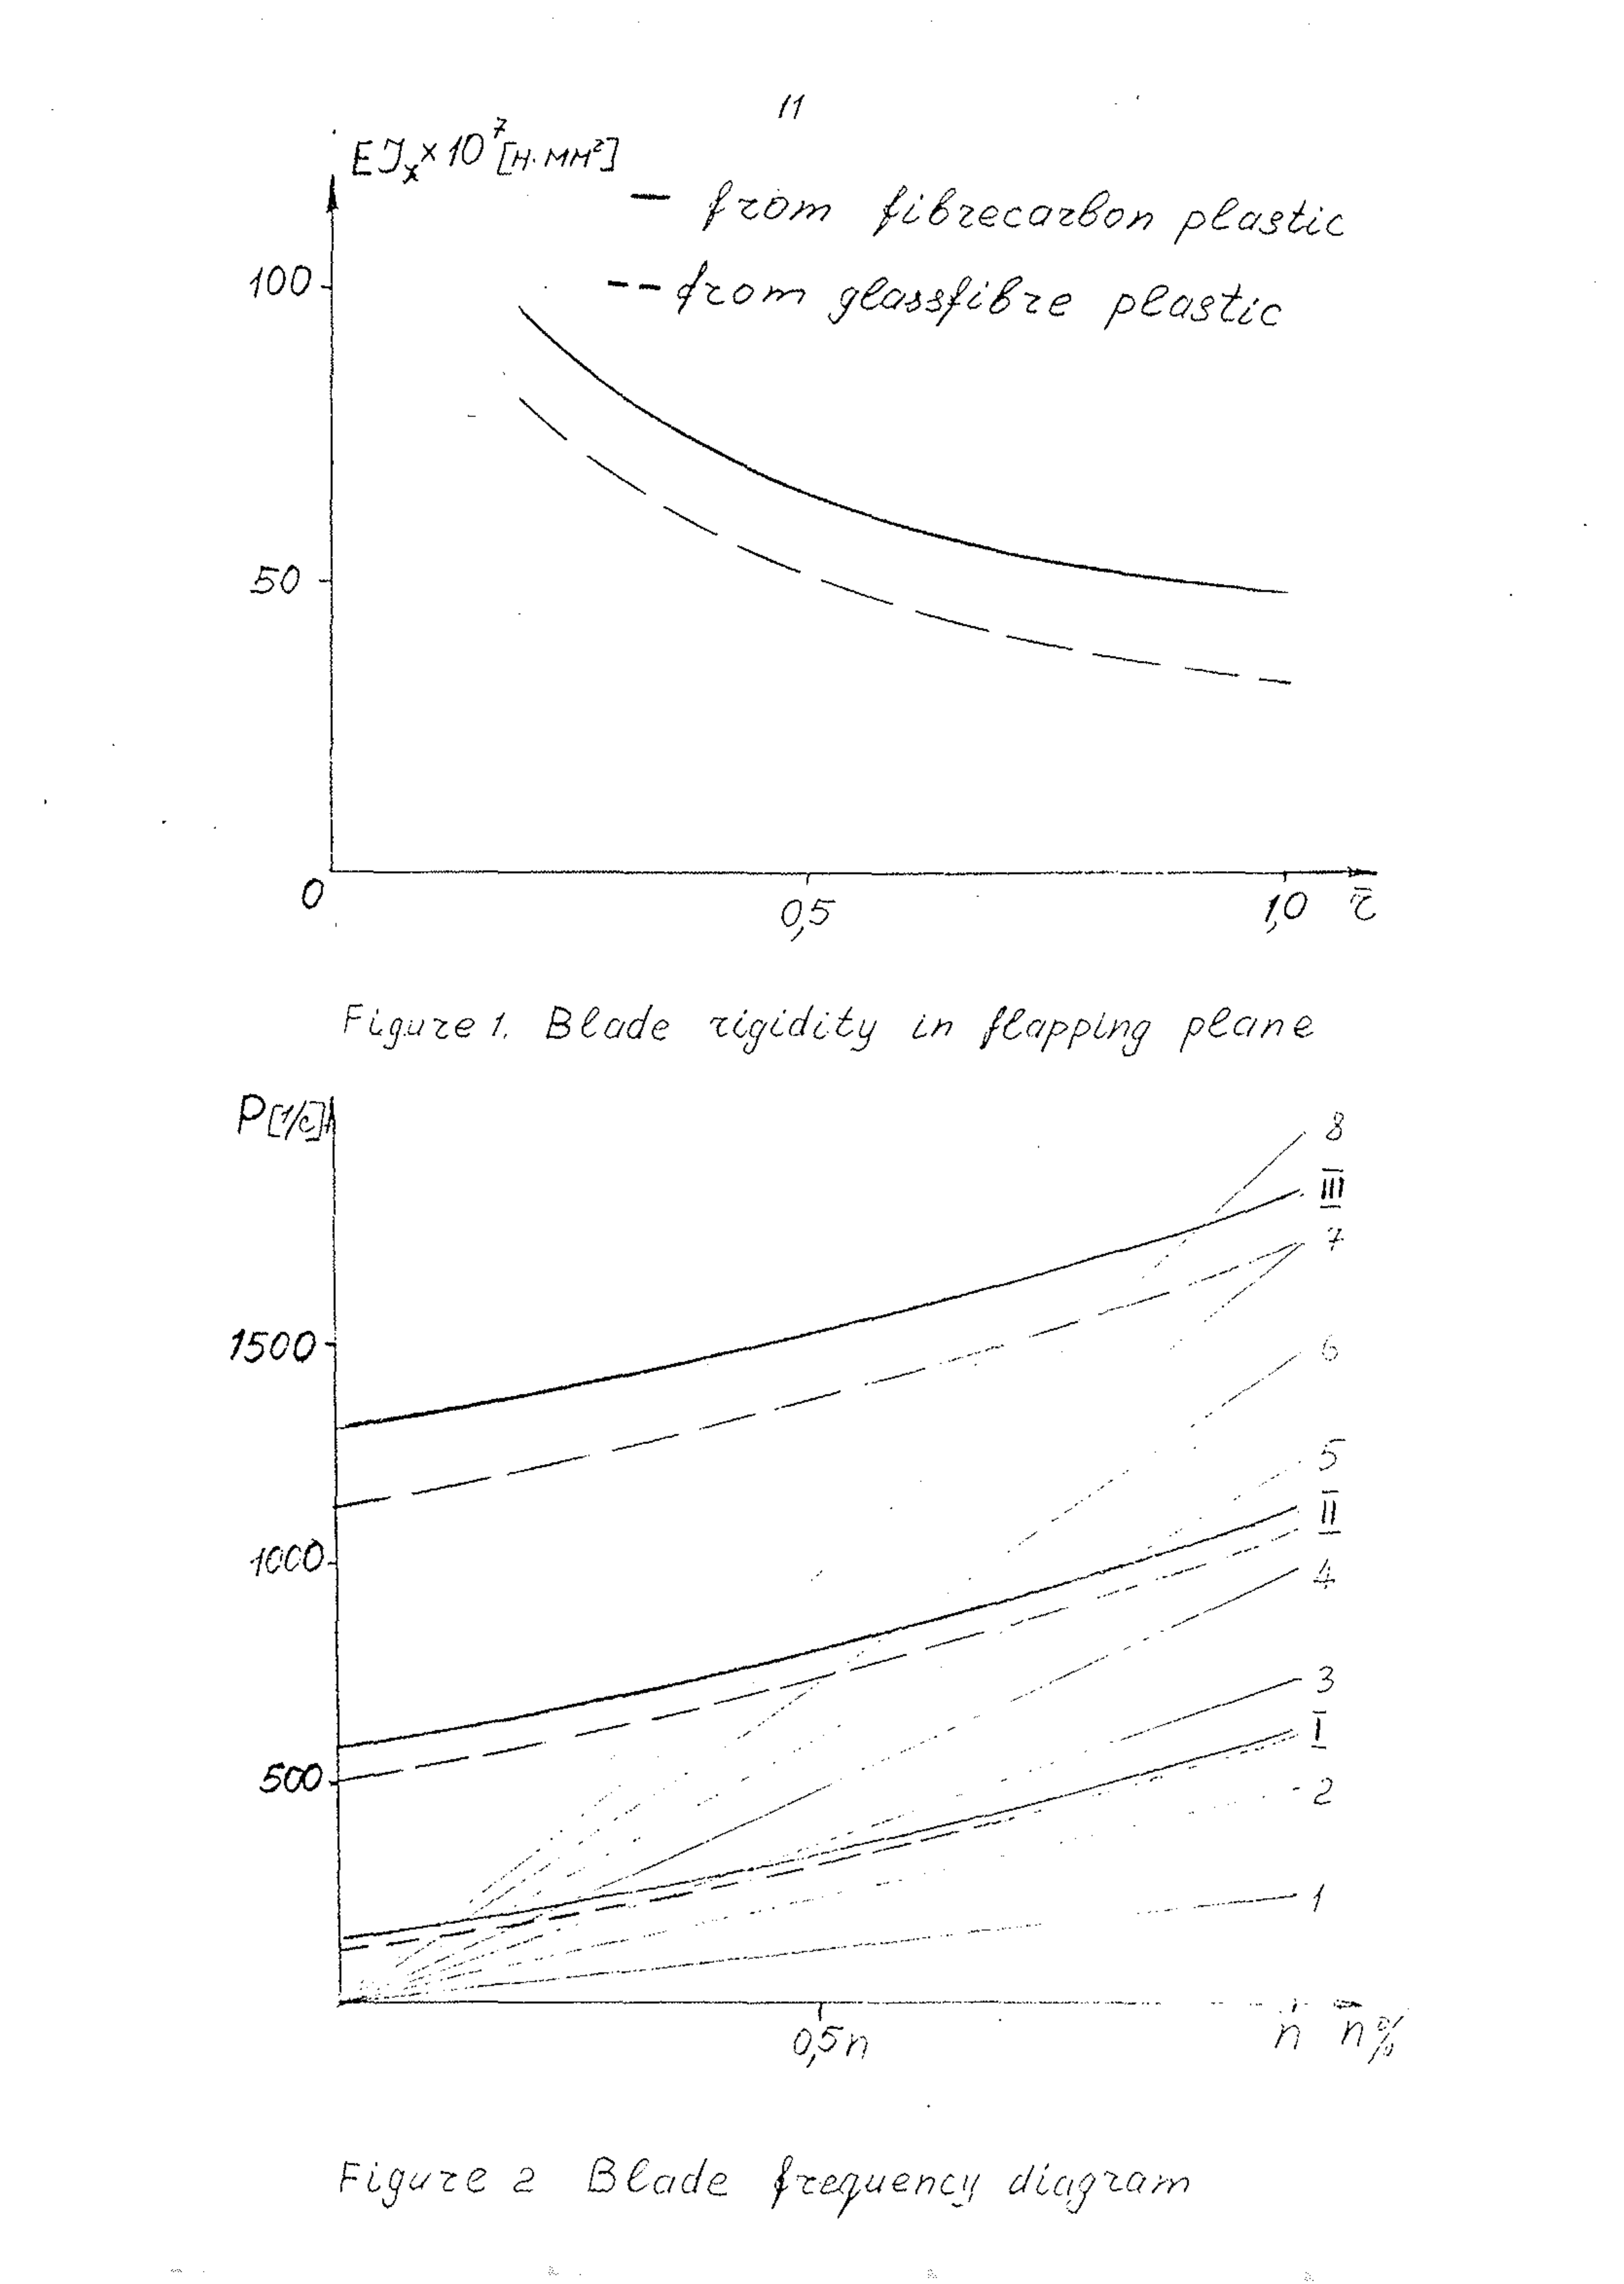 11
EJx×10⁷[н·мм²]
— from fibrecarbon plastic
-- from glassfibre plastic
100
50
0
0,5
1,0
r̄
Figure 1. Blade rigidity in flapping plane
P[1/c]
8
III
7
1500
6
5
II
1000
4
3
I
500
2
1
0,5n
n
n̄%
Figure 2 Blade frequency diagram